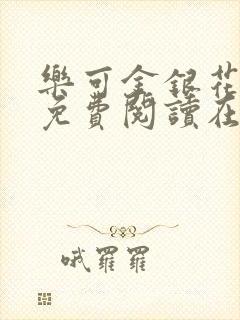 樂可金銀花
免費閱讀在
哦羅羅